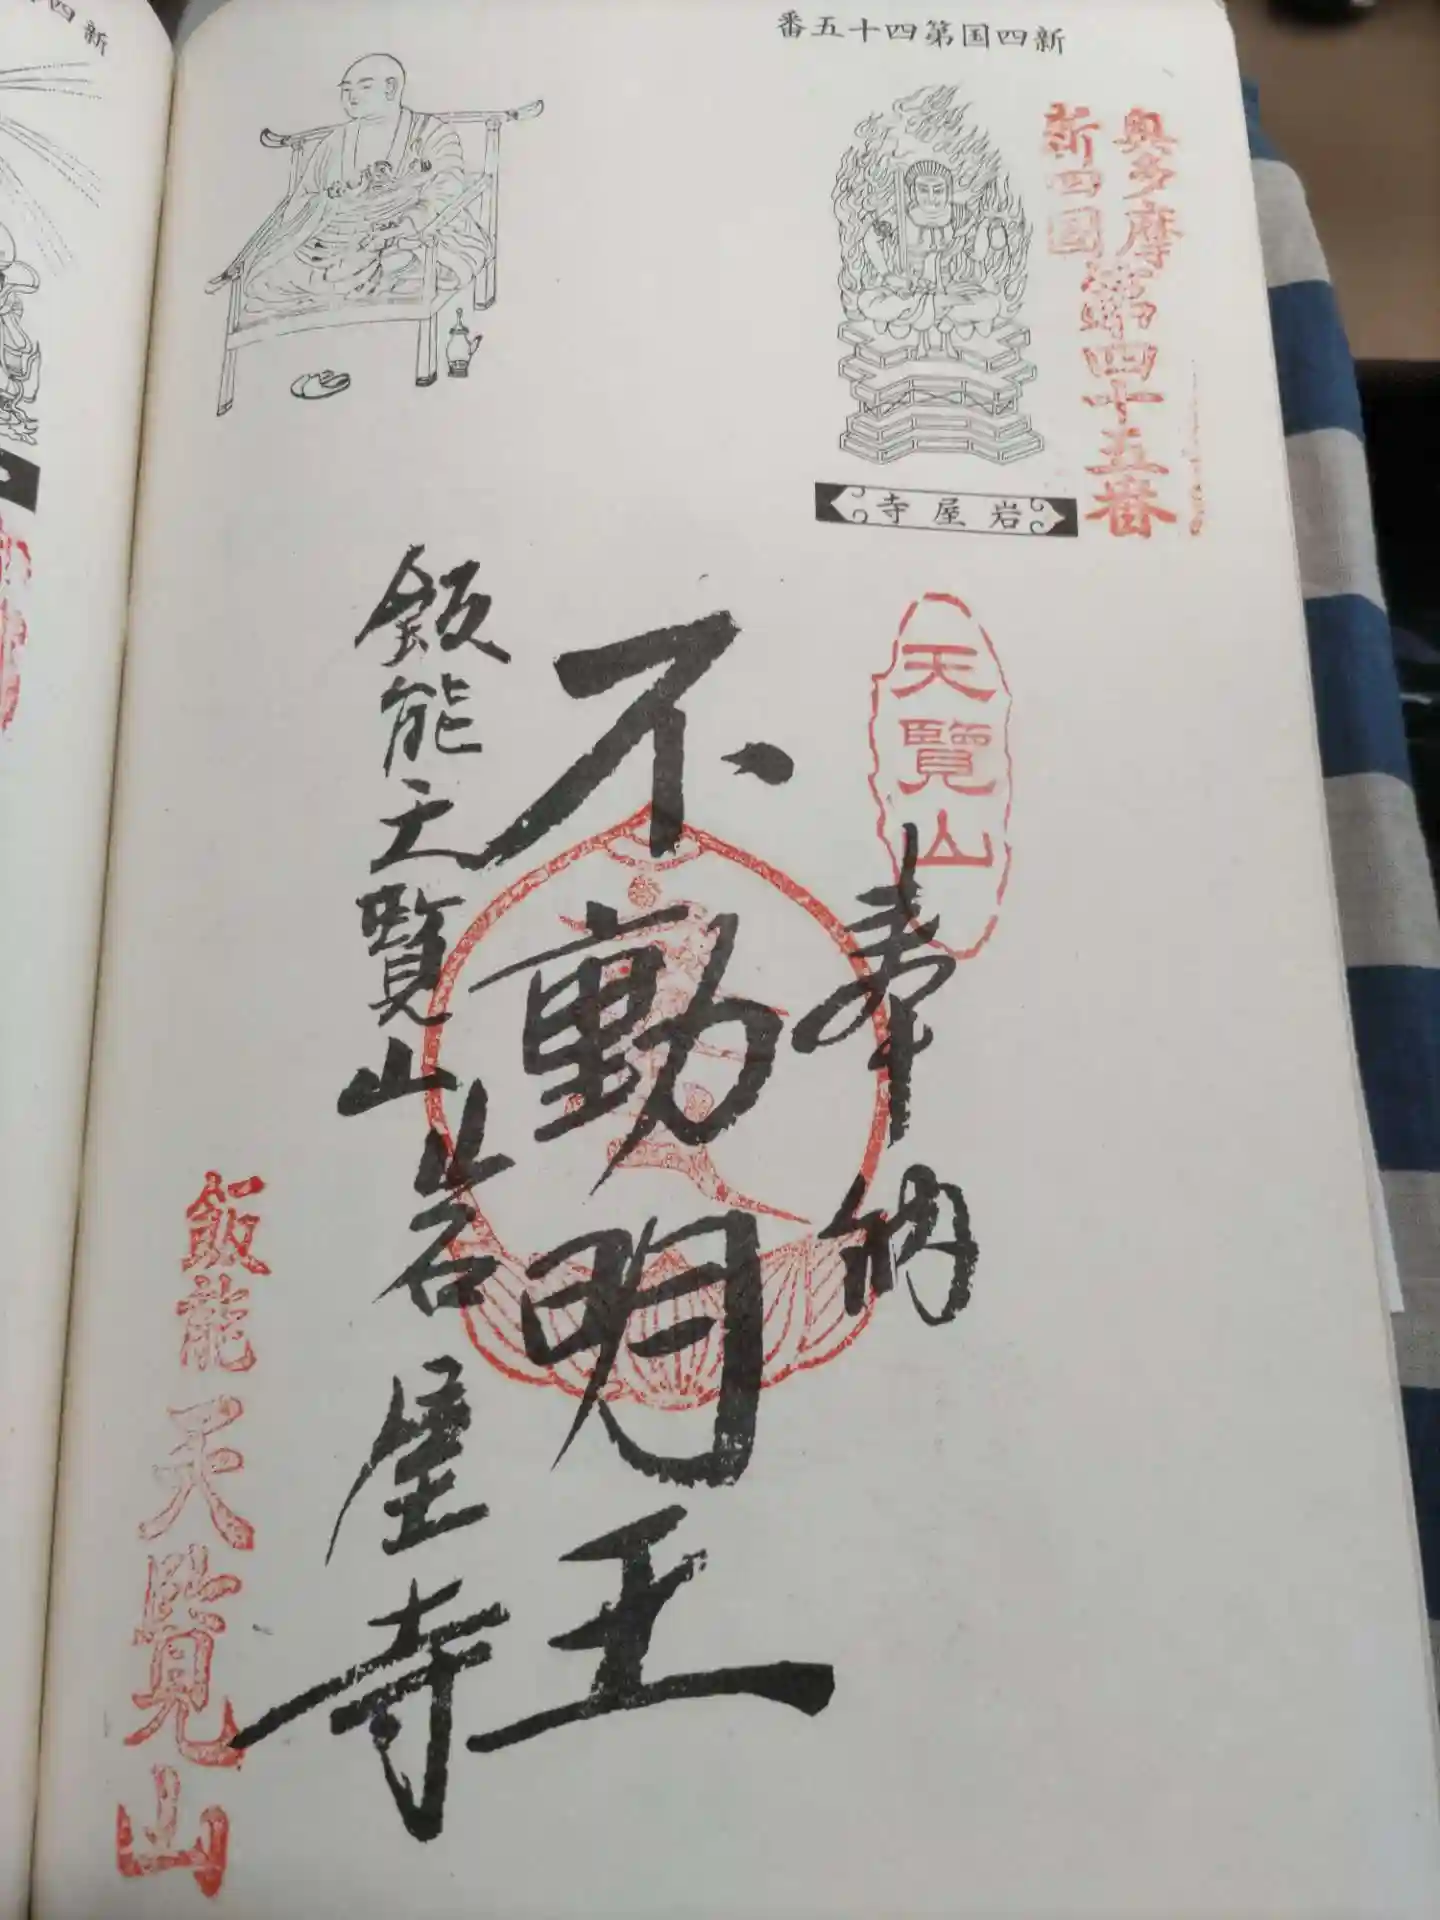 新四国第四十五番
奥多摩
新四國
第四十五番
岩屋寺
天覽山
奉納
不動明王
飯能天覧山岩屋寺
飯能天覧山